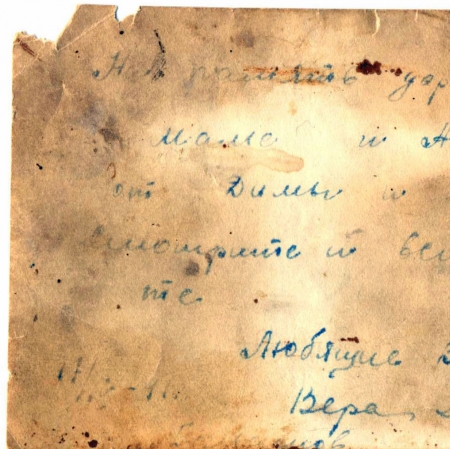 На память дор
Маме и Н
от Димы и
Смотрите и всп
те
Любящие В
Вера,